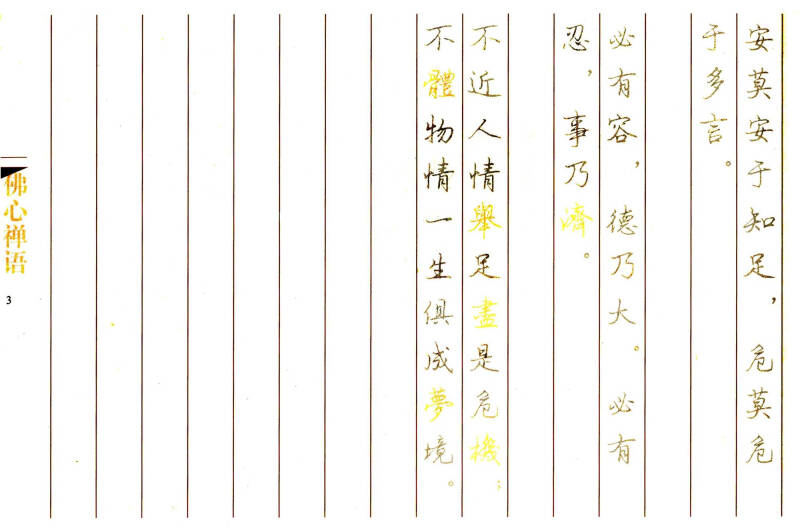 安莫安于知足，危莫危
于多言。
必有容，德乃大。必有
忍，事乃濟。
不近人情舉足盡是危機；
不體物情一生俱成夢境。
佛心禅语
3